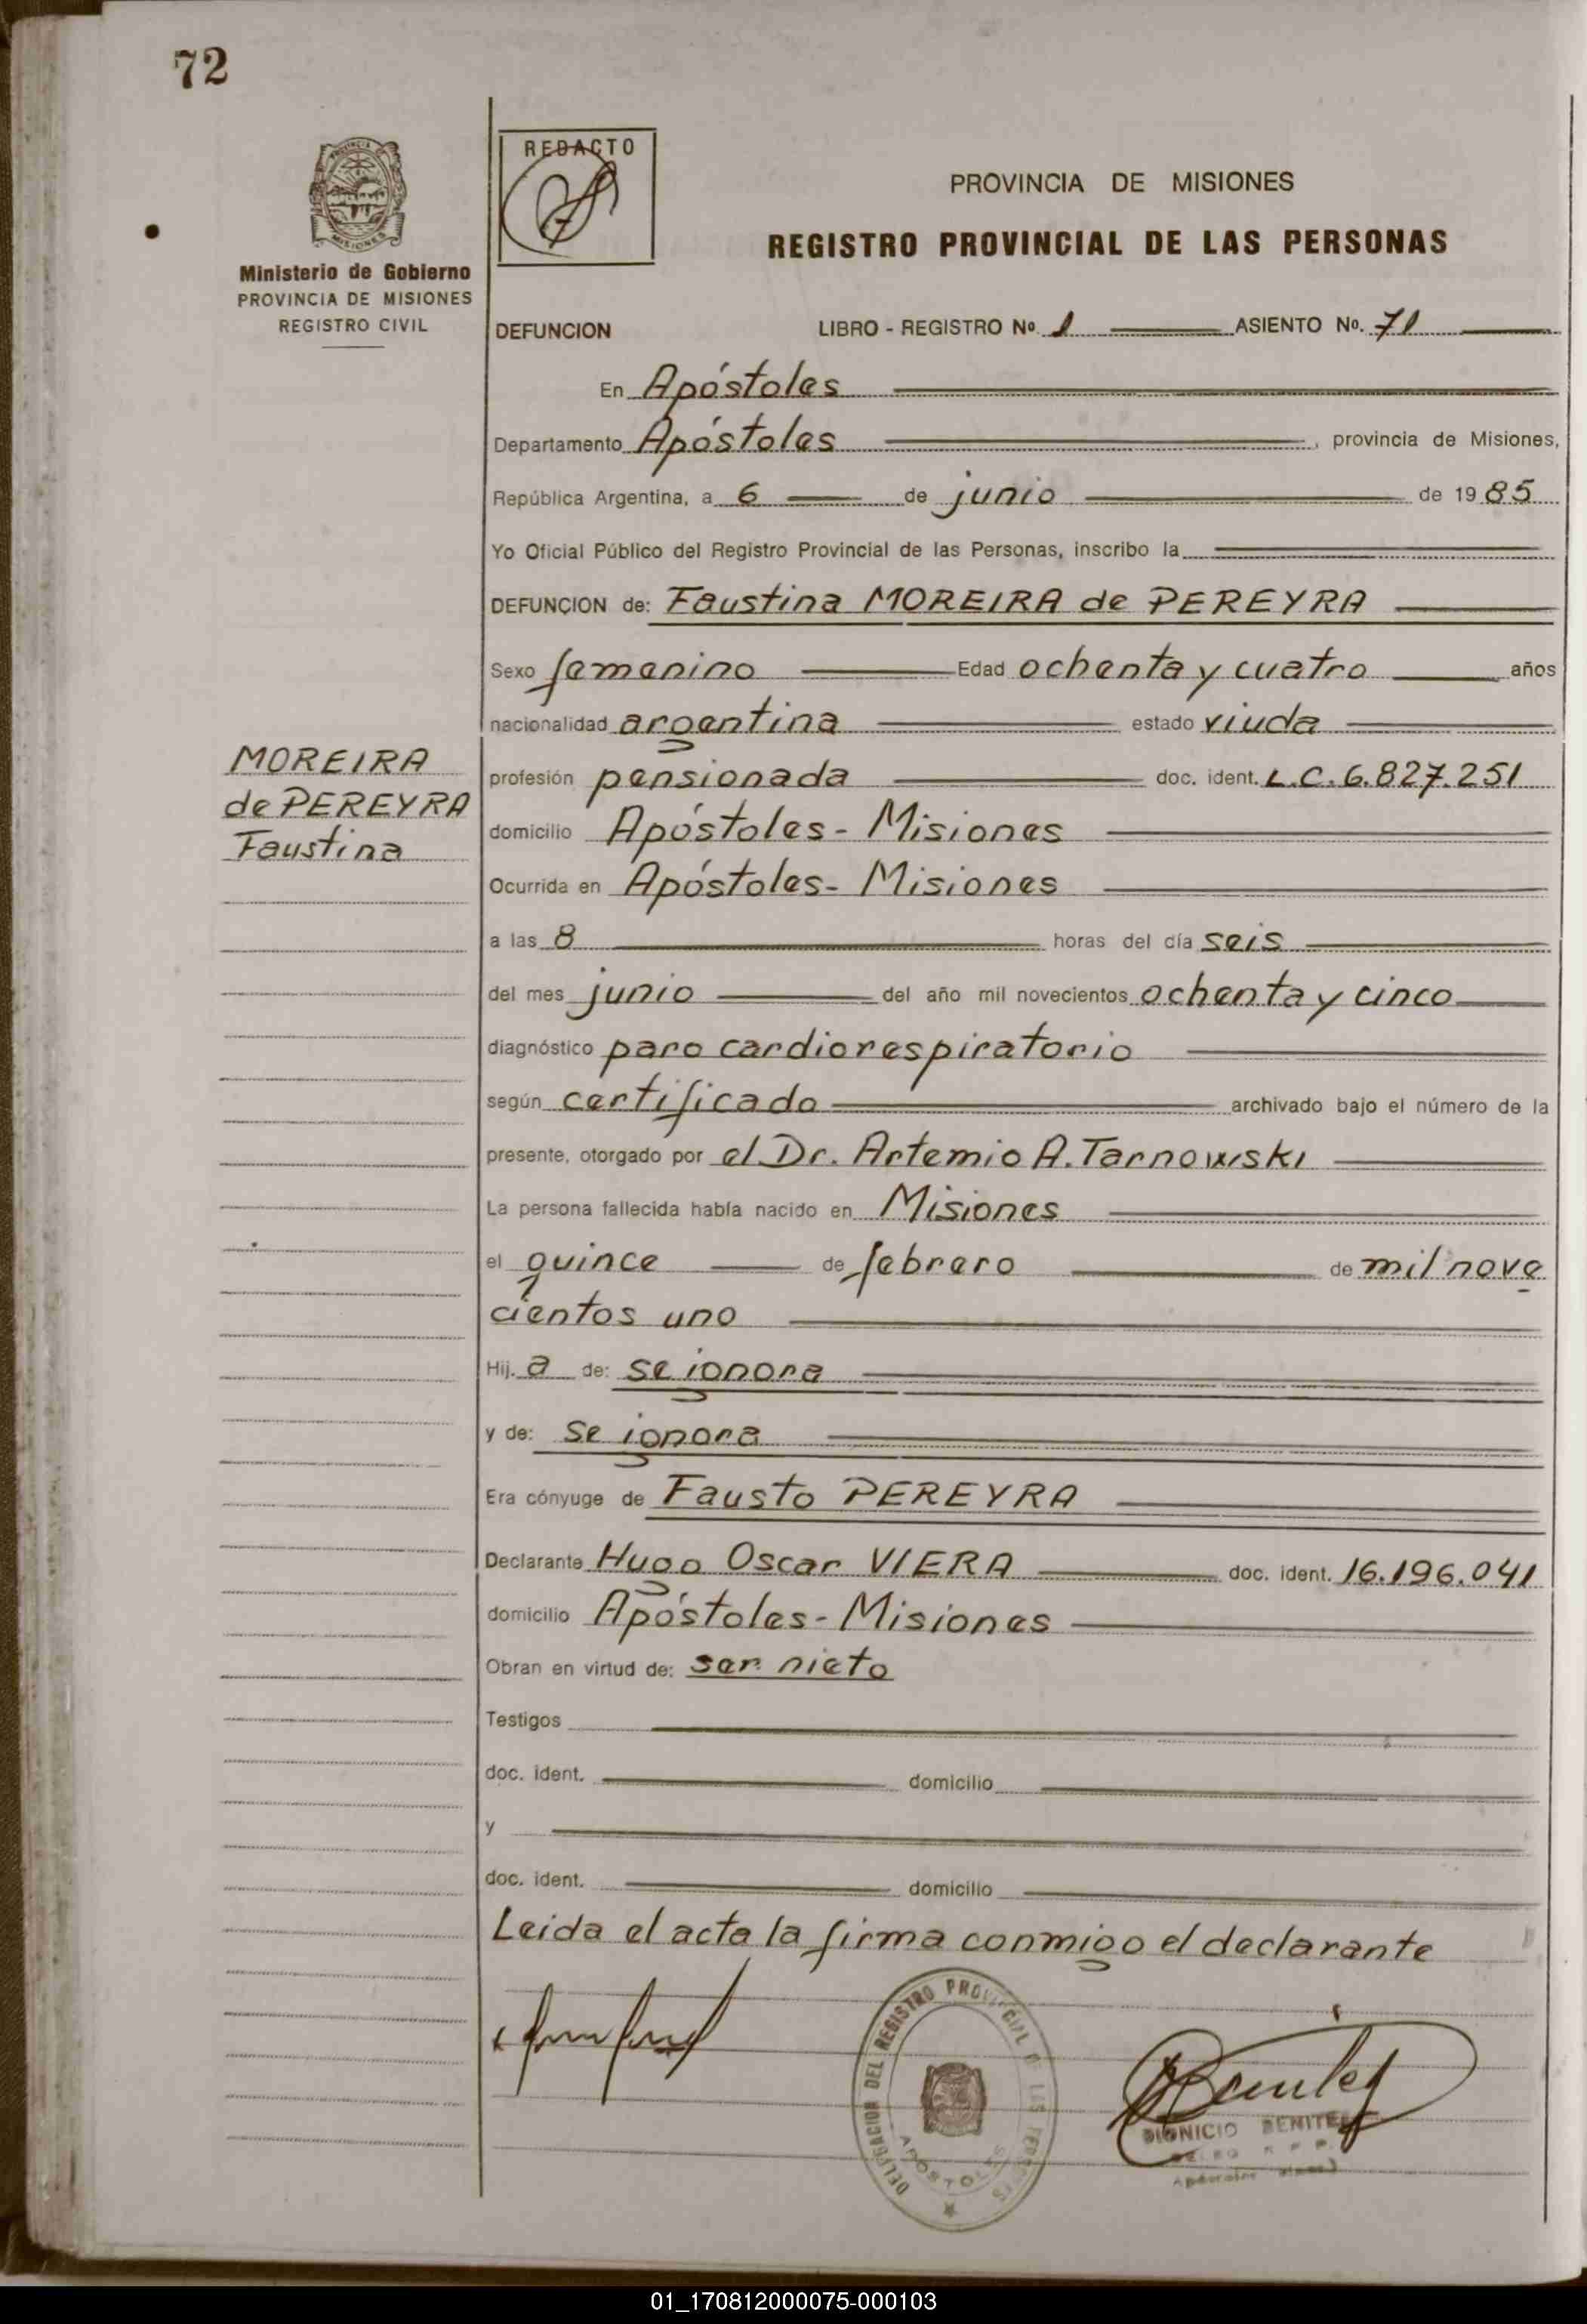 72
REDACTO
PROVINCIA DE MISIONES
REGISTRO PROVINCIAL DE LAS PERSONAS
MISIONES
Ministerio de Gobierno
PROVINCIA DE MISIONES
REGISTRO CIVIL
DEFUNCION LIBRO - REGISTRO Nº 1 ASIENTO Nº. 71
En Apóstoles
Departamento Apóstoles, provincia de Misiones,
República Argentina, a 6 de junio de 1985
Yo Oficial Público del Registro Provincial de las Personas, inscribo la
DEFUNCION de: Faustina MOREIRA de PEREYRA
Sexo femenino Edad ochenta y cuatro años
nacionalidad argentina estado viuda
MOREIRA
de PEREYRA
Faustina
profesión pensionada doc. ident. L.C. 6.827.251
domicilio Apóstoles - Misiones
Ocurrida en Apóstoles - Misiones
a las 8 horas del día seis
del mes junio del año mil novecientos ochenta y cinco
diagnóstico paro cardiorespiratorio
según certificado archivado bajo el número de la
presente, otorgado por el Dr. Artemio A. Tarnowski
La persona fallecida había nacido en Misiones
el quince de febrero de mil nove
cientos uno
Hij. a de: se ignora
y de: se ignora
Era cónyuge de Fausto PEREYRA
Declarante Hugo Oscar VIERA doc. ident. 16.196.041
domicilio Apóstoles - Misiones
Obran en virtud de: ser nieto
Testigos
doc. ident. domicilio
y
doc. ident. domicilio
Leida el acta la firma conmigo el declarante
DELEGACION DEL REGISTRO PROVINCIAL D LAS PERSONAS
APOSTOLES
DIONICIO BENITEZ
01_170812000075-000103